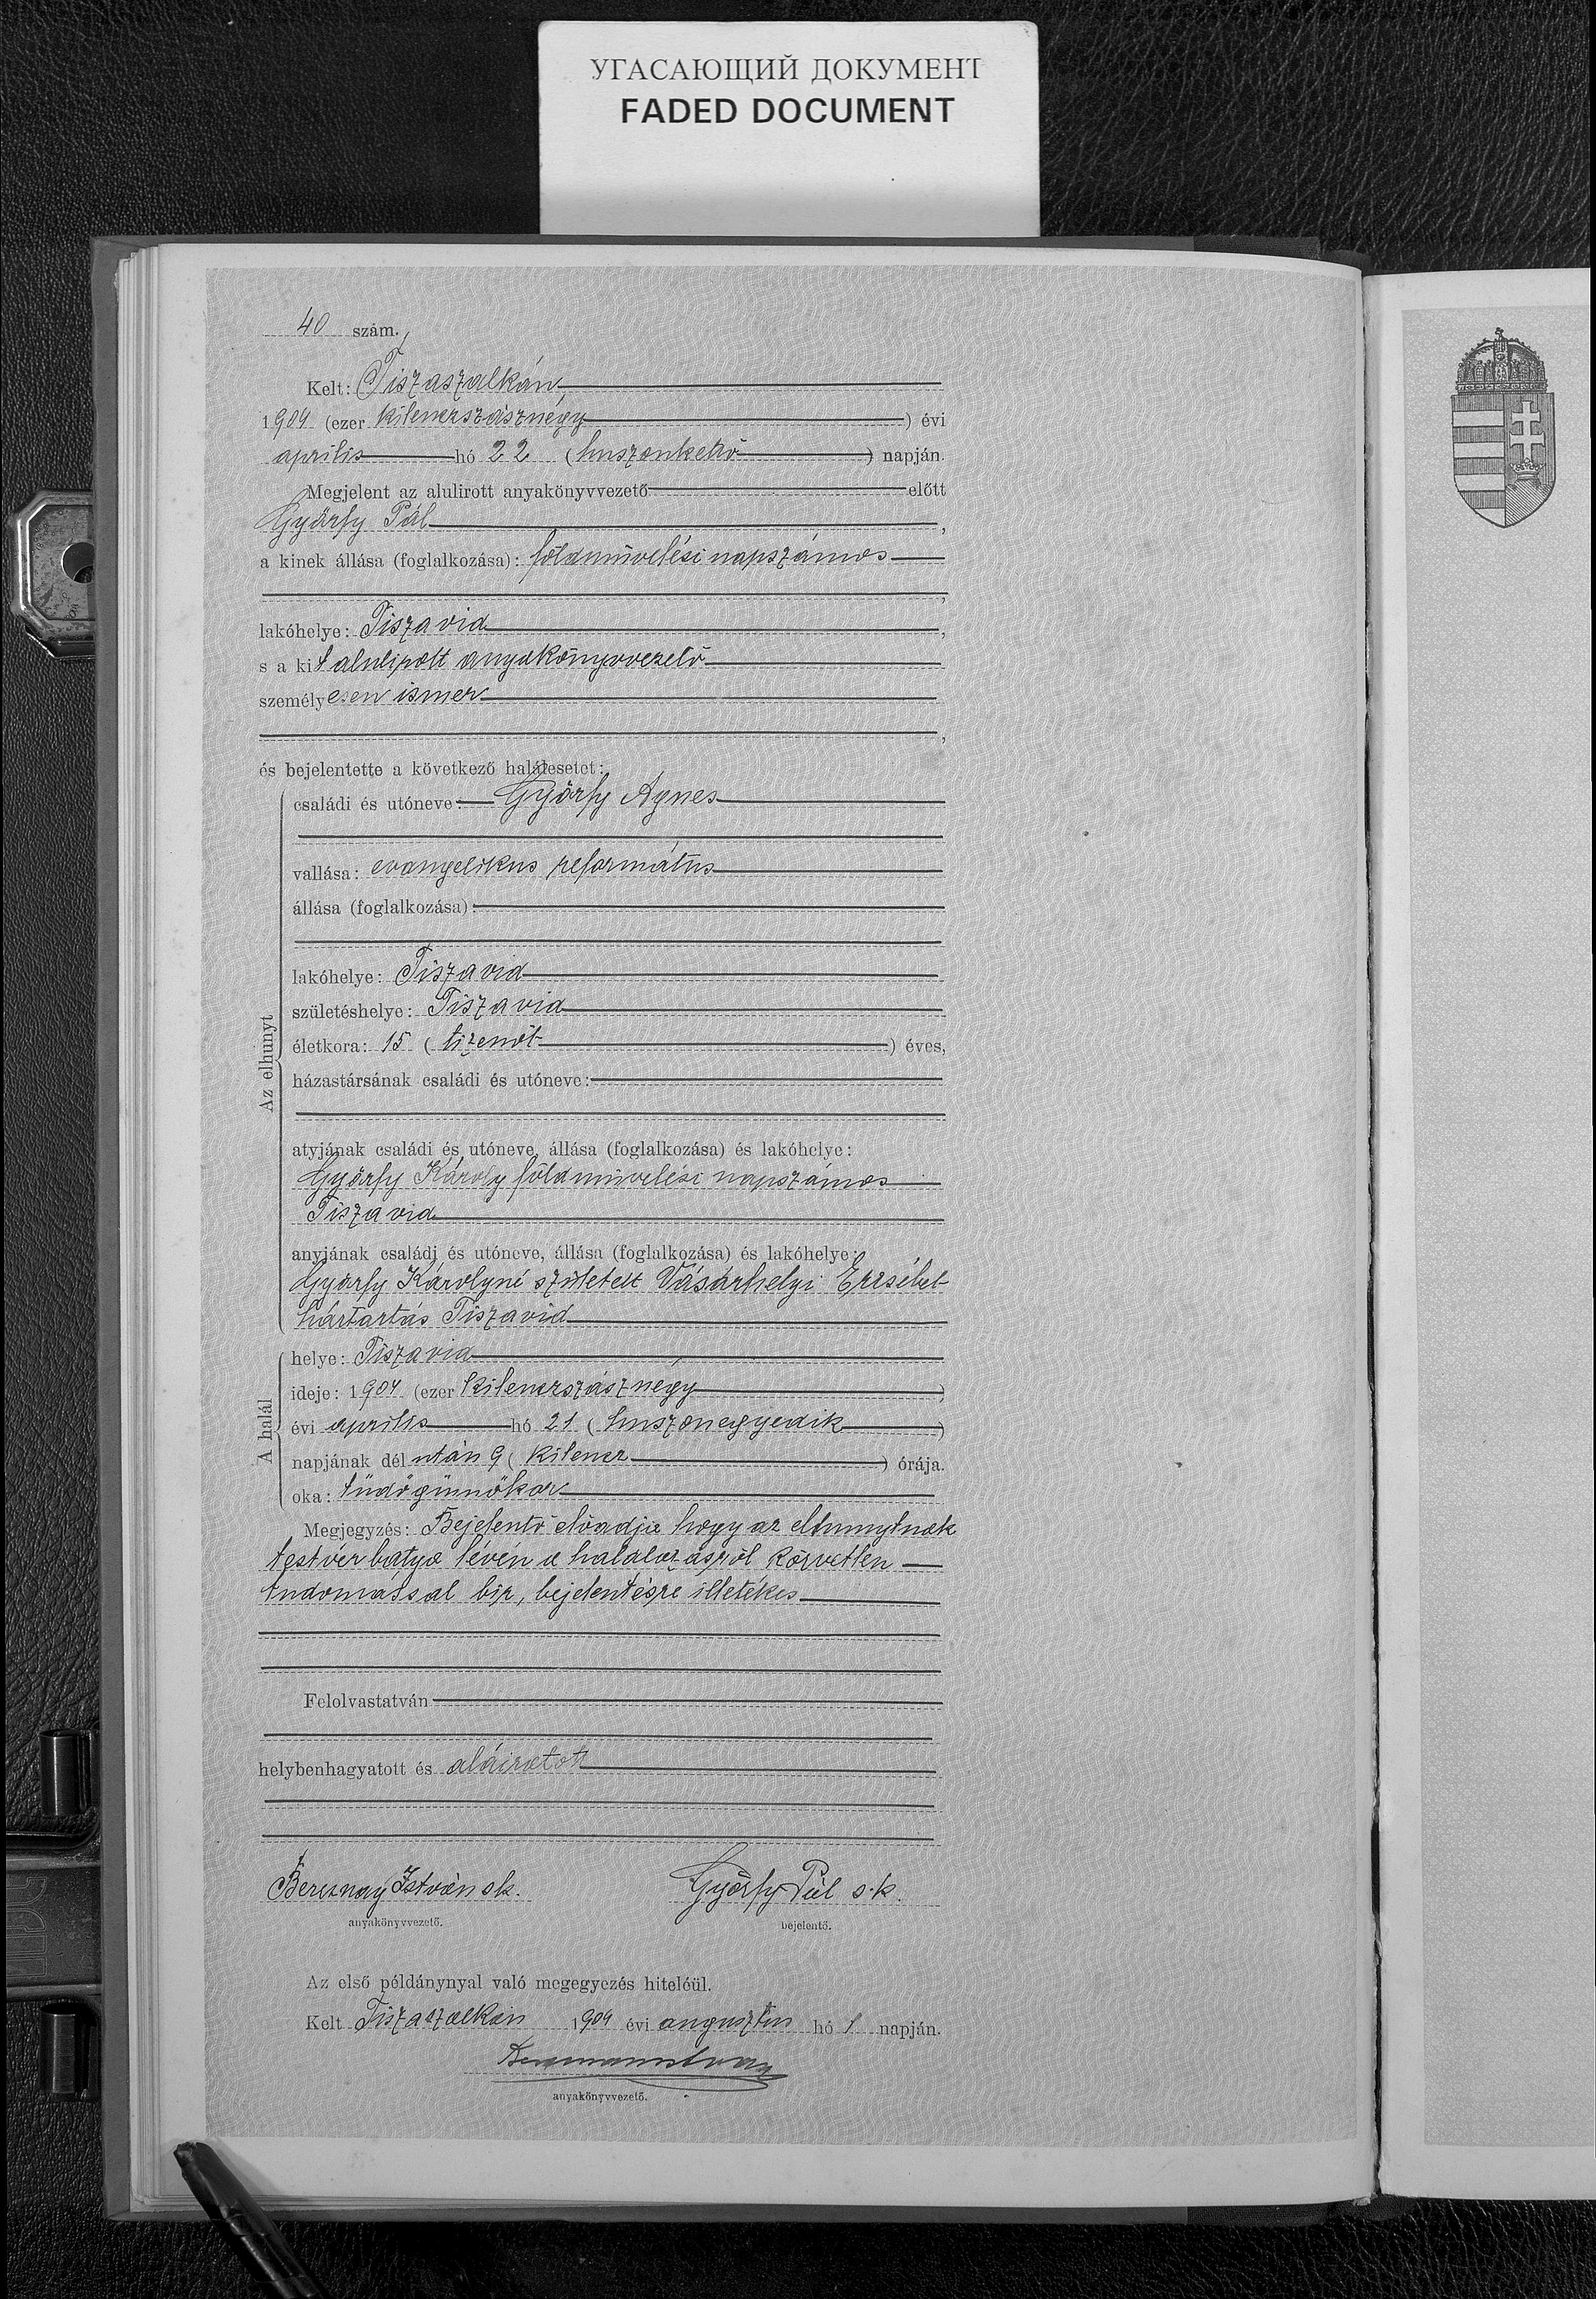 УГАСАЮЩИЙ ДОКУМЕНТ
FADED DOCUMENT
40 szám.
Kelt: Tiszaszalkán,
1904 (ezer kilencszásznégy) évi
április hó 22 (huszonkettő) napján.
Megjelent az alulirott anyakönyvvezető előtt
Györfy Pál,
a kinek állása (foglalkozása): földmüvelési napszámos
,
lakóhelye: Tiszavid,
s a kit alulirott anyakönyvvezető
személyesen ismer
,
és bejelentette a következő halálesetet:
Az elhunyt
családi és utóneve: Györfy Ágnes
vallása: evangelikus református
állása (foglalkozása):
lakóhelye: Tiszavid
születéshelye: Tiszavid
életkora: 15 (tizenöt) éves,
házastársának családi és utóneve:
atyjának családi és utóneve, állása (foglalkozása) és lakóhelye:
Györfy Károly földmüvelési napszámos
Tiszavid
anyjának családi és utóneve, állása (foglalkozása) és lakóhelye:
Györfy Károlyné született Vásárhelyi Erzsébet
háztartás Tiszavid
A halál
helye: Tiszavid
ideje: 1904 (ezer kilencszásznégy)
évi április hó 21 (huszonegyedik)
napjának dél után 9 (kilenc) órája.
oka: tüdőgümőkor
Megjegyzés: Bejelentő előadja hogy az elhunytnak
testvér bátya lévén a halálozásról közvetlen
tudomással bir, bejelentésre illetékes
Felolvastatván
helybenhagyatott és aláiratott
István sk.
Györfy Pál s.k.
anyakönyvvezető.
bejelentő.
Az első példánynyal való megegyezés hiteléül.
Kelt Tiszaszalkán 1904 évi augusztus hó 1 napján.
anyakönyvvezető.